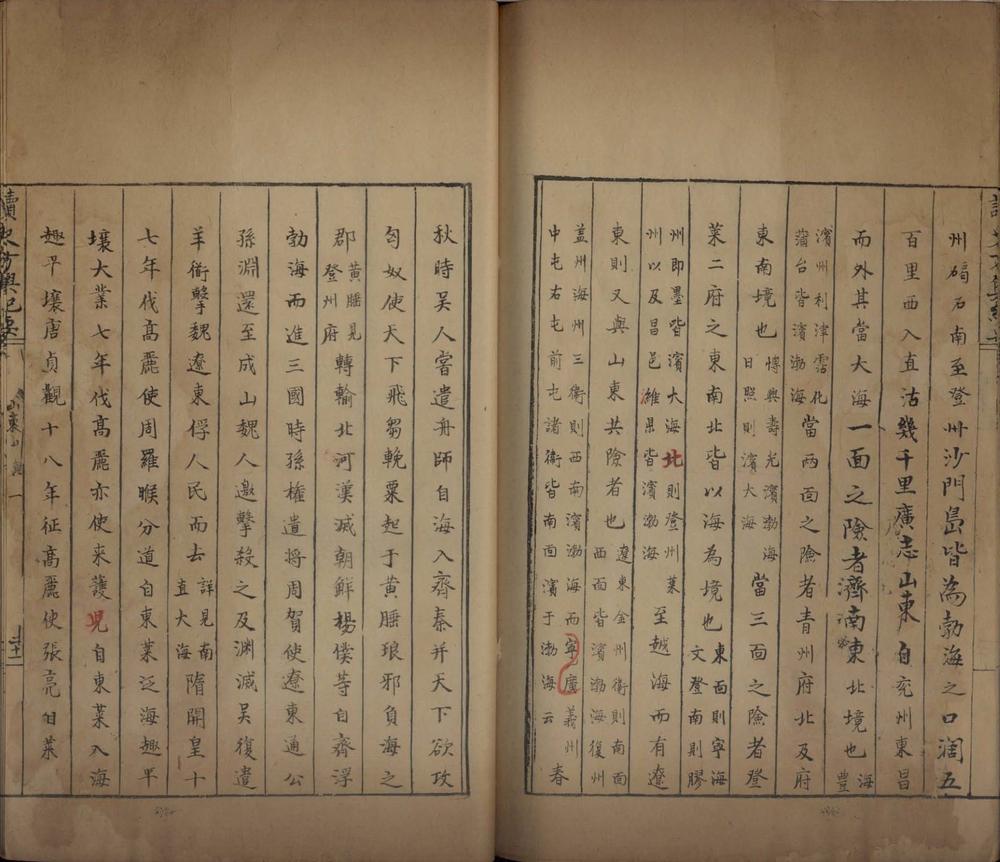 州碣石南至登州沙門島皆為勃海之口濶五
百里西入直沽幾千里廣志山東自兗州東昌
而外其當大海一面之險者濟南東北境也海豐
濱州利津霑化蒲台皆濱渤海當兩面之險者青州府北及府
東南境也博興壽光濱渤海日照則濱大海當三面之險者登
萊二府之東南北皆以海為境也東面則寧海文登南則膠
州即墨皆濱大海北則登州萊州以及昌邑濰縣皆濱渤海至越海而有遼
東則又與山東共險者也遼東金州衞則南面西面皆濱渤海復州
盖州海州三衞則西南濱渤海而寧廣義州中屯右屯前屯諸衞皆南面濱于渤海云春
秋時吴人嘗遣舟師自海入齊秦并天下欲攻
匈奴使天下飛芻輓粟起于黃腄琅邪負海之
郡黃腄見登州府轉輸北河漢滅朝鮮楊僕等自齊浮
勃海而進三國時孫權遣將周賀使遼東通公
孫淵還至成山魏人邀擊殺之及淵滅吴復遣
羊衜擊魏遼東俘人民而去詳見南直大海隋開皇十
七年伐高麗使周羅睺分道自東萊泛海趣平
壤大業七年伐高麗亦使来護児自東萊入海
趣平壤唐貞觀十八年征高麗使張亮自萊
讀史方輿紀要
山東